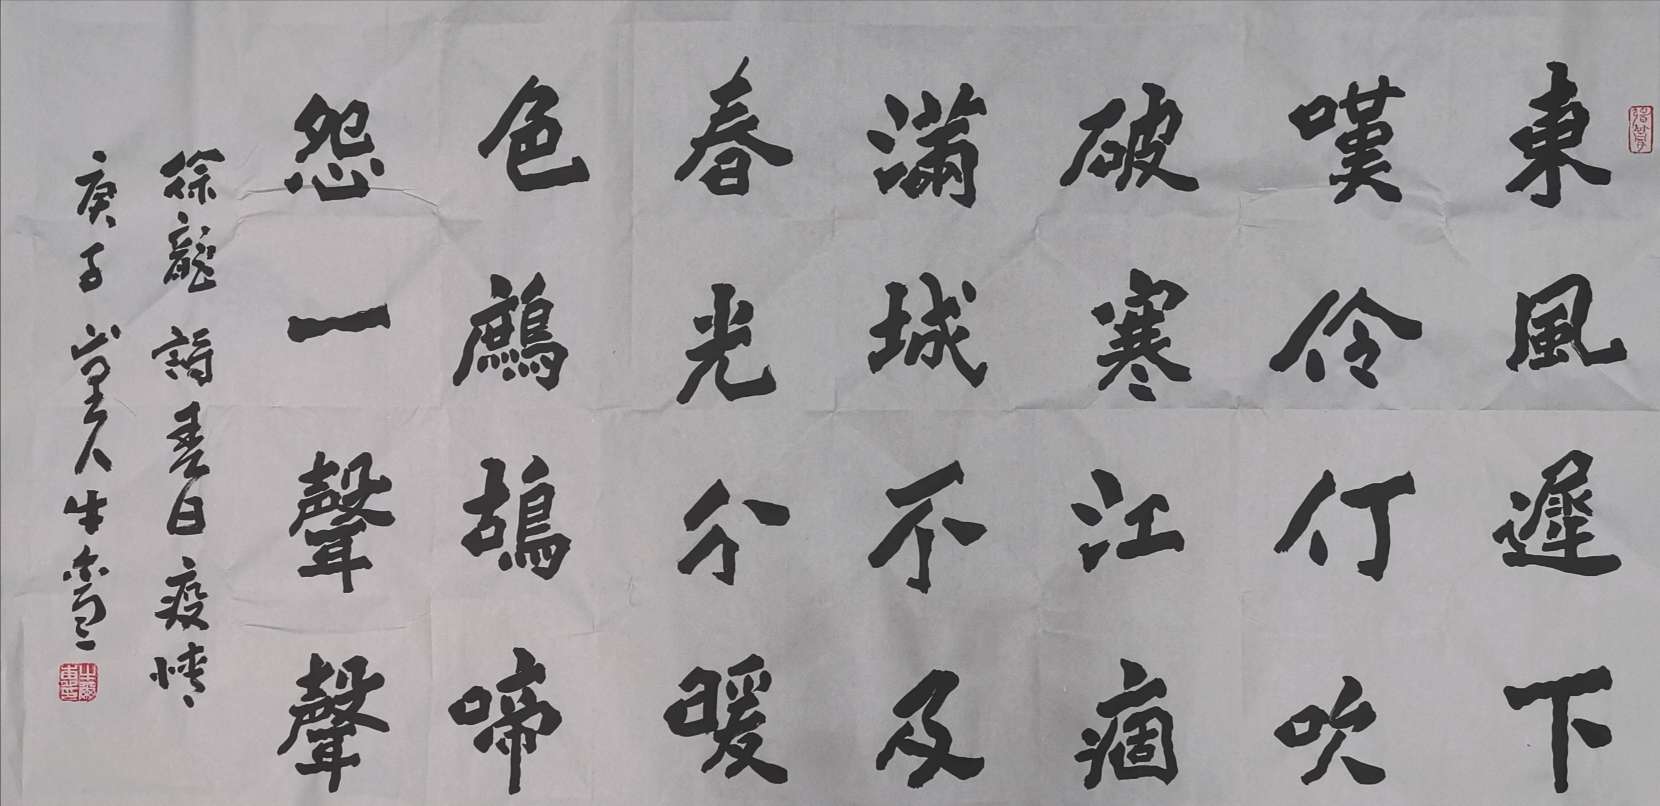 東風遲下
嘆伶仃吹
破寒江痼
滿城不及
春光分暖
色鷓鴣啼
怨一聲聲
徐龍詩春日疫情
庚子 人牛